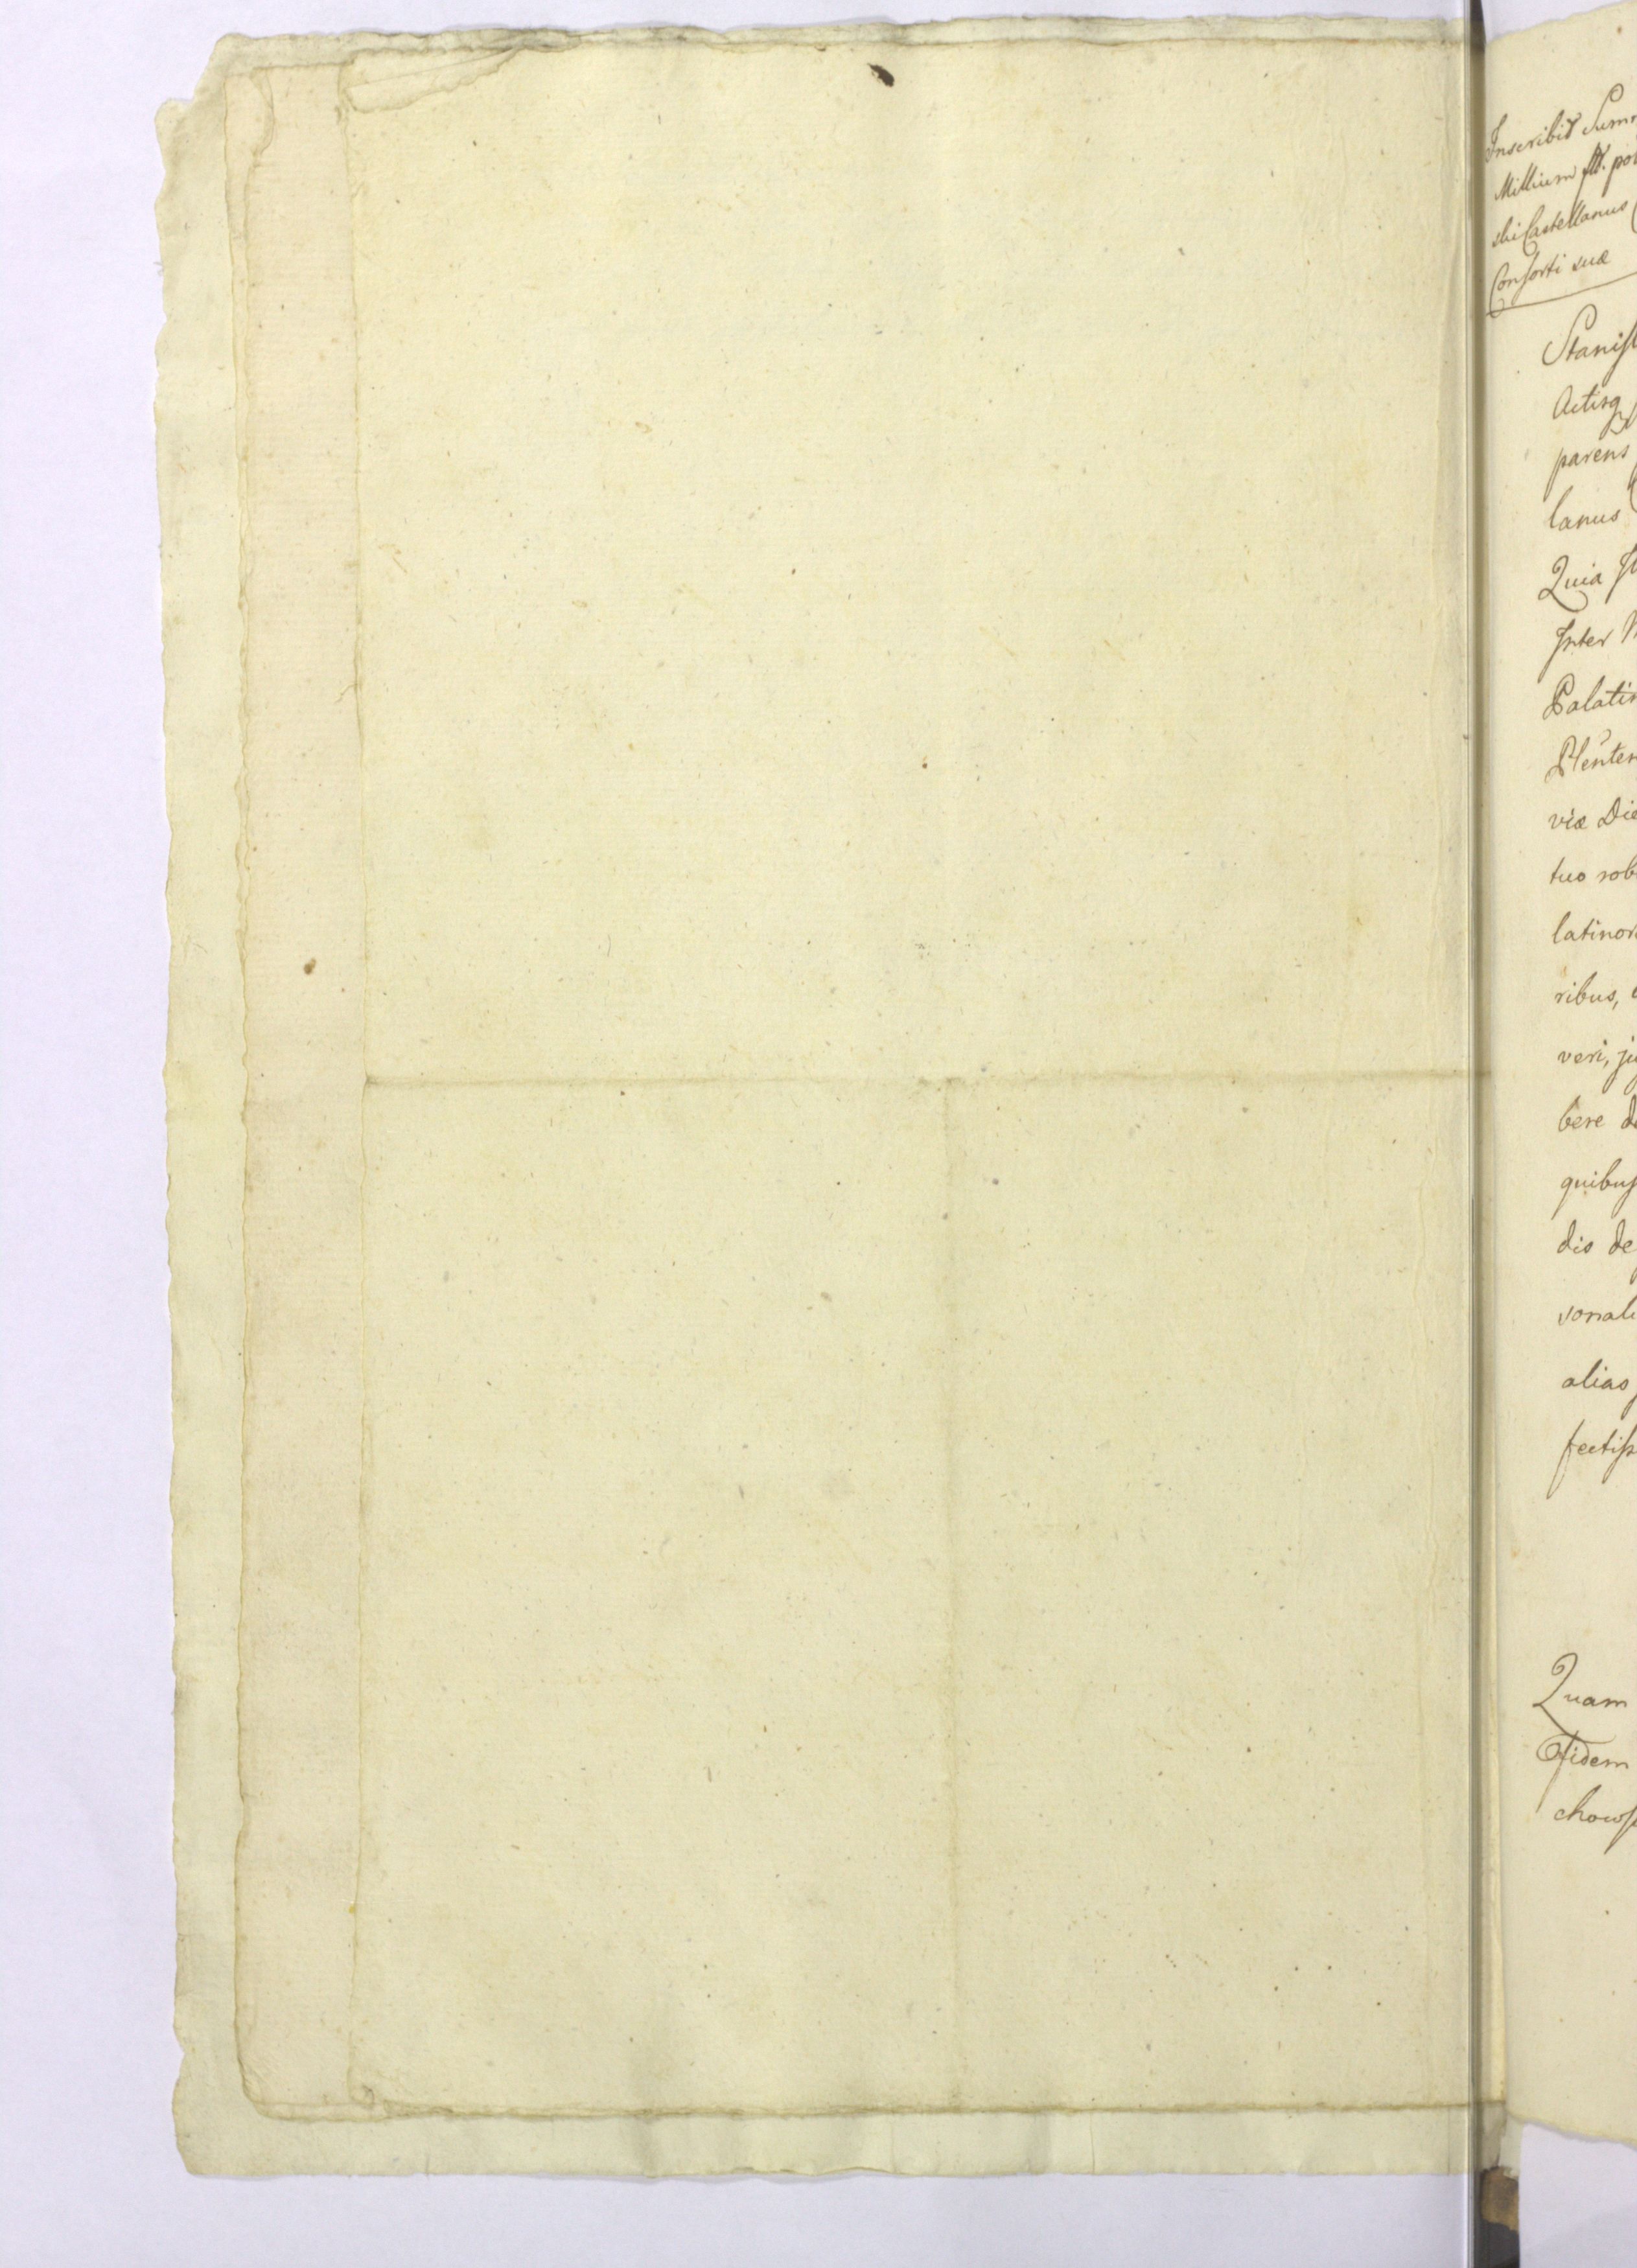 Inscribit Sum
Millium fl. po
ski Castellanus
Consorti suæ
Stanisl
Actisq
parens
lanus
Quia
Inter
Palatin
Plenten
viæ Die
tuo rob
latinor
ribus,
veri, ju
bere de
quibus
dis de
sonali
alias
fectiss
Quam
Fidem
chows